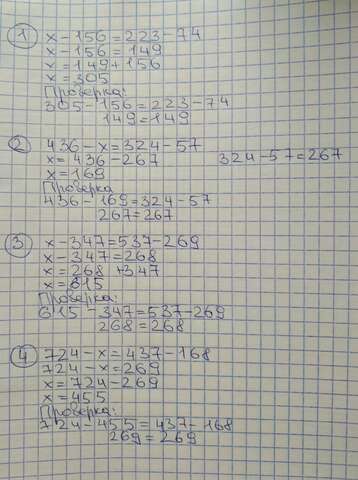 1
x - 156 = 223 - 74
x - 156 = 149
x = 149 + 156
x = 305
Проверка:
305 - 156 = 223 - 74
149 = 149
2
436 - x = 324 - 57
x = 436 - 267    324 - 57 = 267
x = 169
Проверка
436 - 169 = 324 - 57
267 = 267
3
x - 347 = 537 - 269
x - 347 = 268
x = 268 + 347
x = 615
Проверка:
615 - 347 = 537 - 269
268 = 268
4
724 - x = 437 - 168
724 - x = 269
x = 724 - 269
x = 455
Проверка:
724 - 455 = 437 - 168
269 = 269